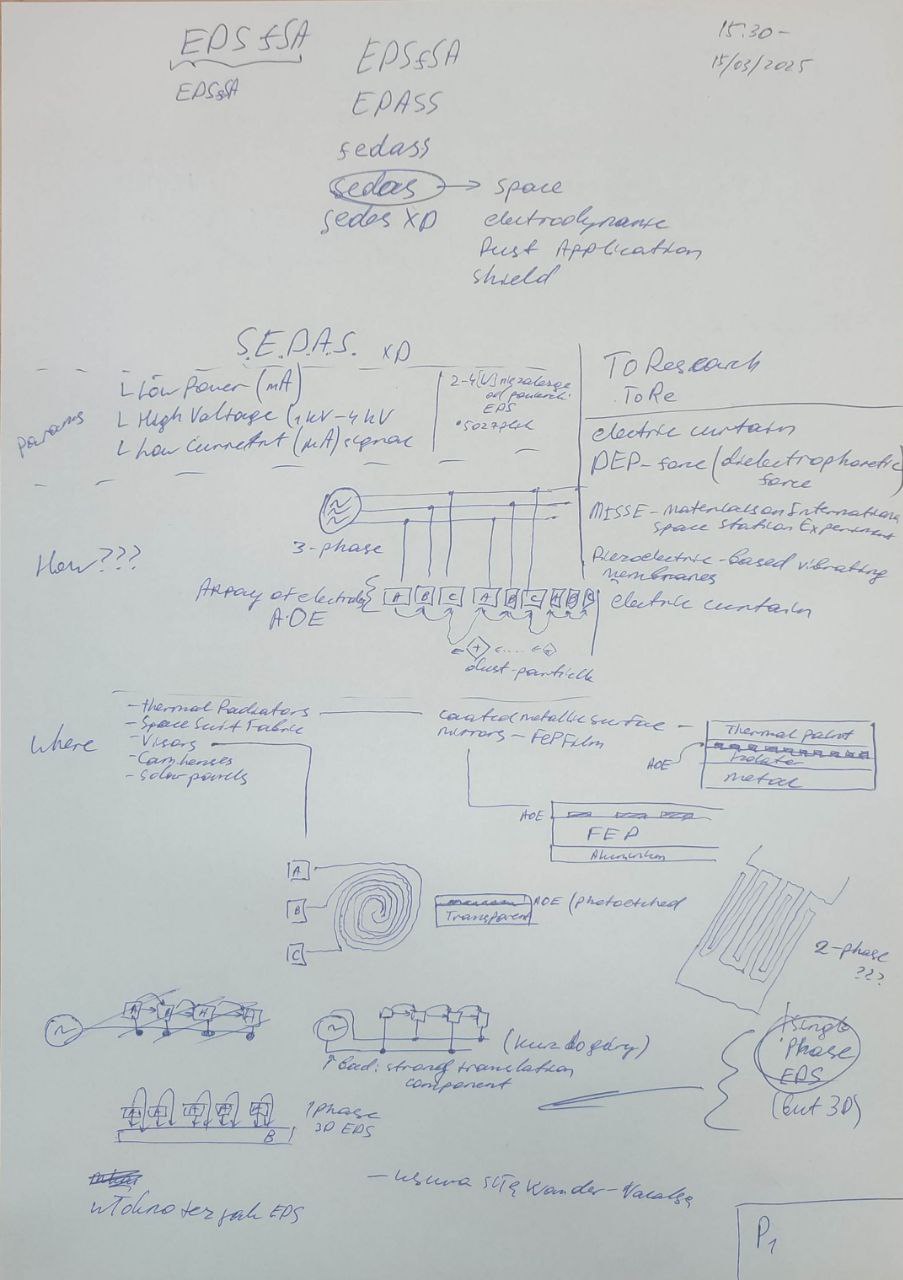 EDSfSA
EDSfSA
15:30 -
15/03/2025
EDSfSA
EDASS
sedass
sedas → space
sedas XD
electrodynamic
Dust Application
shield
S.E.D.A.S. XD
params
L Low Power (mA)
L High Voltage (1kV-4kV
L Low Current (mA) signal
2-4[kV]
od powierz.
EDS
To Research
ToRe
electric curtain
DEP-force (dielectrophoretic
force
MISSE - Materials on International
space station Experiment
Piezoelectric-based vibrating
membranes
electric curtain
How???
3-phase
Array of electrodes
AOE
A B C A B C A B C
+
+
dust-particle
where
- thermal Radiators
- Space Suit Fabric
- Visors
- Cam lenses
- Solar panels
coated metallic surface -
mirrors - FEP Film
AOE
Thermal paint
Isolator
metal
AOE
FEP
Aluminium
A
B
C
Transparent
AOE (photoetched
2-phase
???
A B A A
(kurz do góry)
↑ Bad: strong translation
component
single
Phase
EDS
(but 3D)
A A A A A
B
1 phase
3D EDS
włókno też jak EDS
- usuwa siłę Wander-Vaalsa
P1